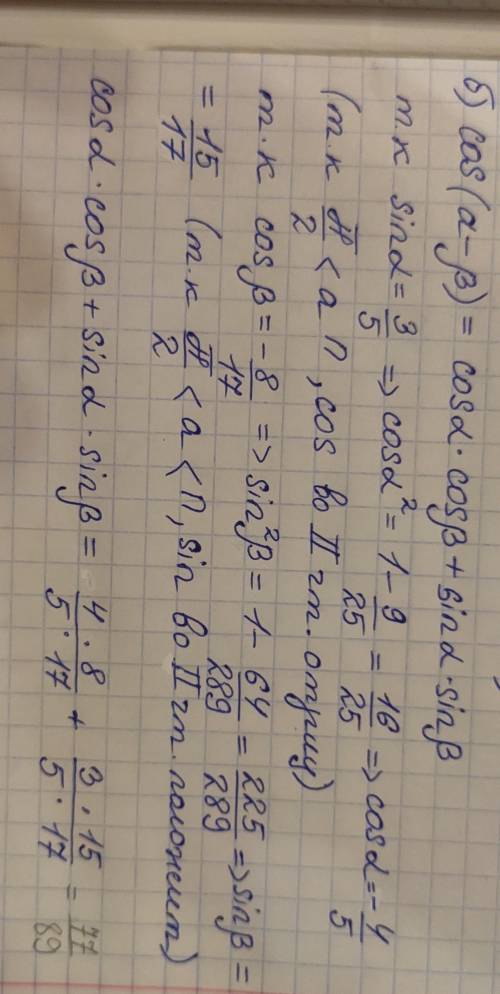 б) cos(α-β) = cosα·cosβ + sinα·sinβ
т.к sinα = 3/5 => cosα² = 1 - 9/25 = 16/25 => cosα = -4/5
(т.к π/2 < α п, cos во II чт. отриц)
т.к cosβ = -8/17 => sin²β = 1 - 64/289 = 225/289 => sinβ =
= 15/17 (т.к π/2 < α < п, sin во II чт. положит)
cosα·cosβ + sinα·sinβ = 4·8/5·17 + 3·15/5·17 = 77/89